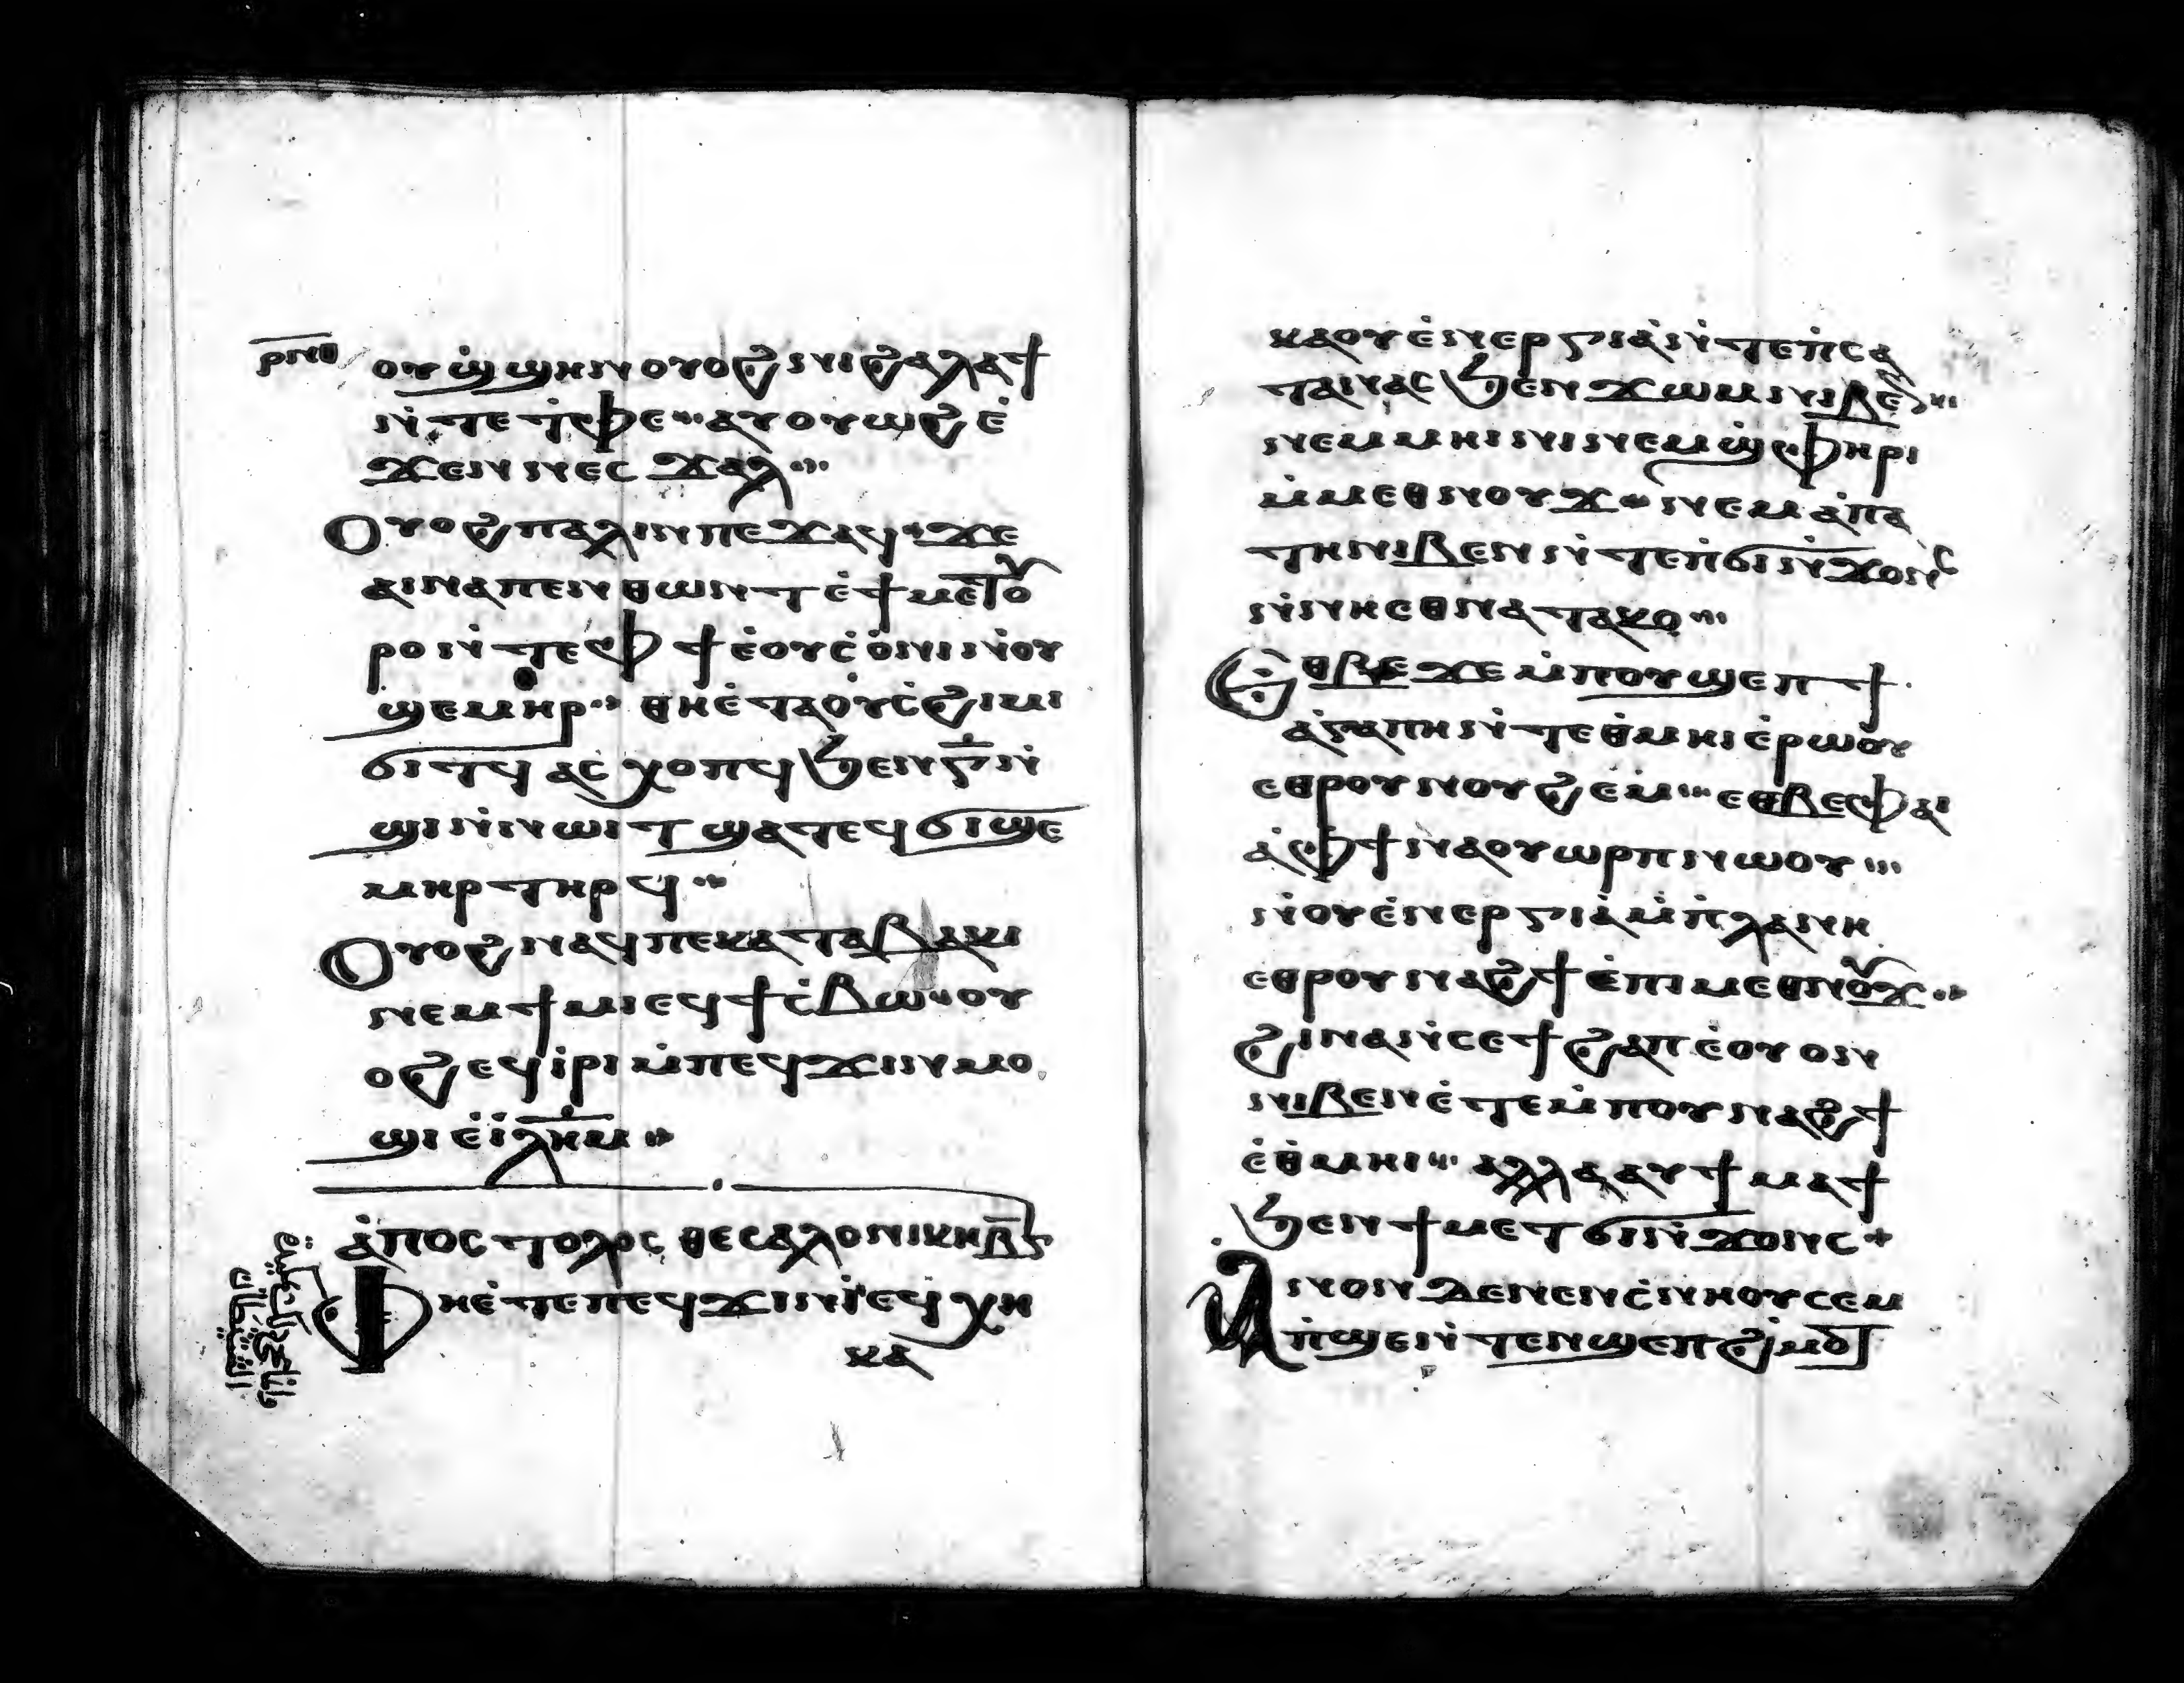 ⲣⲛⲑ
ⲟⲩϣ̇ϣⲏⲛ ⲟⲩⲟϩ ⲛⲓϩⲁⲗⲁϯ
ⲛ̇ⲧⲉ ⲧ̇ⲫⲉ ⲁⲩⲟⲩⲱϩ ⲉ̇
ϫⲉⲛ ⲛⲉⲥ ϫⲁⲗ
Ⲟⲩⲟϩ ⲡⲁⲗⲓⲛ ⲡⲉϫⲁϥ ϫⲉ
ⲁⲓⲛⲁⲧⲉⲛⲑⲱⲛⲧ ⲉ̇ϯⲙⲉⲧⲟⲩ
ⲣⲟ ⲛ̇ⲧⲉ ⲫϯ ⲉ̇ⲟⲩⲥ̇ⲟⲛⲓ ⲛ̇ⲟⲩ
ϣⲉⲙⲏⲣ ⲑⲏⲉ̇ⲧⲁⲟⲩⲥ̇ϩⲓⲙⲓ
ϭⲓⲧϥ ⲁⲥ̇ⲭⲟⲡϥ ϧⲉⲛ ⲅ̅ ⲛ̇
ϣⲓ ⲛ̇ⲛⲱⲓⲧ ϣⲁⲧⲉϥϭⲓϣⲉ
ⲙⲏⲣ ⲧⲏⲣϥ
Ⲟⲩⲟϩ ⲛⲁϥⲡⲉ ⲕⲁⲧⲁ ⲃⲁⲕⲓ
ⲛⲉⲙ ϯⲙⲓ ⲉϥϯⲥ̇ⲃⲱ ⲟⲩ
ⲟϩ ⲉϥⲓ̇ⲣⲓ ⲙ̇ⲡⲉϥϫⲓⲛⲙⲟ
ϣⲓ ⲉ̇ⲓ̇ⲗⲏⲙ
ⲁ̇ⲡⲟⲥⲧⲟⲗⲟⲥ ⲑⲉⲥⲁⲗⲟⲛⲓⲕⲏ ⲃ̅
Ⲫⲏⲉ̇ⲧⲉ ⲡⲉϥϫⲓⲛⲓ̇ ⲉϥⲭⲏ
ⲕⲁ
ⲕⲁⲟⲩⲉ̇ⲛⲉⲣⲅⲓⲁ̇ ⲛ̇ⲧⲉ ⲡ̇ⲥⲁ
ⲧⲁⲛⲁⲥ ϧⲉⲛ ϫⲱⲙ ⲛⲓⲃⲉⲛ
ⲛⲉⲙ ⲙⲏⲓⲛⲓ ⲛⲉⲙ ϣ̇ⲫⲏⲣⲓ
ⲙ̇ⲙⲉⲑⲛⲟⲩϫ ⲛⲉⲙ ⲁ̇ⲡⲁ
ⲧⲏ ⲛⲓⲃⲉⲛ ⲛ̇ⲧⲉ ⲡ̇ϭⲓⲛ̇ϫⲟⲛⲥ
ⲛ̇ⲛⲏⲉⲑⲛⲁⲧⲁⲕⲟ
Ⲉ̇ⲑⲃⲉ ϫⲉ ⲙ̇ⲡⲟⲩϣⲉⲡ ϯ
ⲁ̇ⲅⲁⲡⲏ ⲛ̇ⲧⲉ ⲑ̇ⲙⲏⲓ ⲉ̇ⲣⲱⲟⲩ
ⲉⲑⲣⲟⲩⲛⲟⲩϩⲉⲙ ⲉⲑⲃⲉ ⲫⲁⲓ
ⲁ̇ⲫϯ ⲛⲁⲟⲩⲱⲣⲡ ⲛⲱⲟⲩ
ⲛ̇ⲟⲩⲉ̇ⲛⲉⲣⲅⲓⲁ̇ ⲙ̇ⲡ̇ⲗⲁⲛⲏ
ⲉⲑⲣⲟⲩⲛⲁϩϯ ⲉ̇ⲡⲓⲙⲉⲑⲛⲟⲩϫ
ϩⲓⲛⲁ ⲛ̇ⲥⲉϯϩⲁⲡ ⲉ̇ⲟⲩⲟⲛ
ⲛⲓⲃⲉⲛ ⲉ̇ⲧⲉⲙ̇ⲡⲟⲩⲛⲁϩϯ
ⲉ̇ⲑ̇ⲙⲏⲓ ⲁⲗⲗⲁ ⲁⲩϯⲙⲁϯ
ϧⲉⲛ ϯⲙⲉⲧϭⲓⲛ̇ϫⲟⲛⲥ
Ⲁⲛⲟⲛ ⲇⲉ ⲛⲉⲛⲥ̇ⲛⲏⲟⲩ ⲥⲉⲙ
ⲡ̇ϣⲉ ⲛ̇ⲧⲉⲛϣⲉⲡϩ̇ⲙⲟⲧ